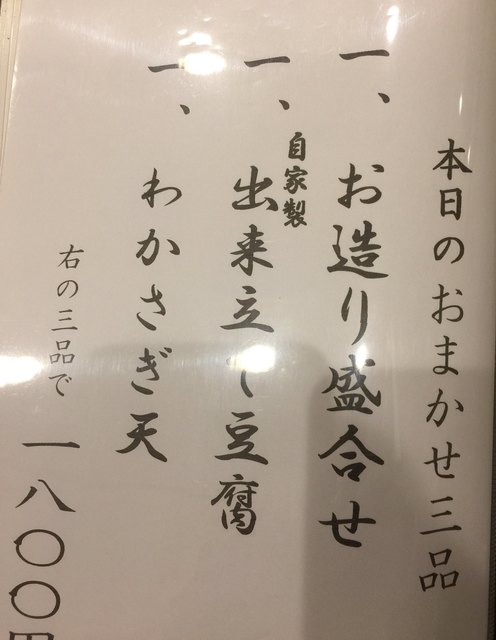 本日のおまかせ三品
一、お造り盛合せ
自家製
一、出来立て豆腐
一、わかさぎ天
右の三品で
一八〇〇円